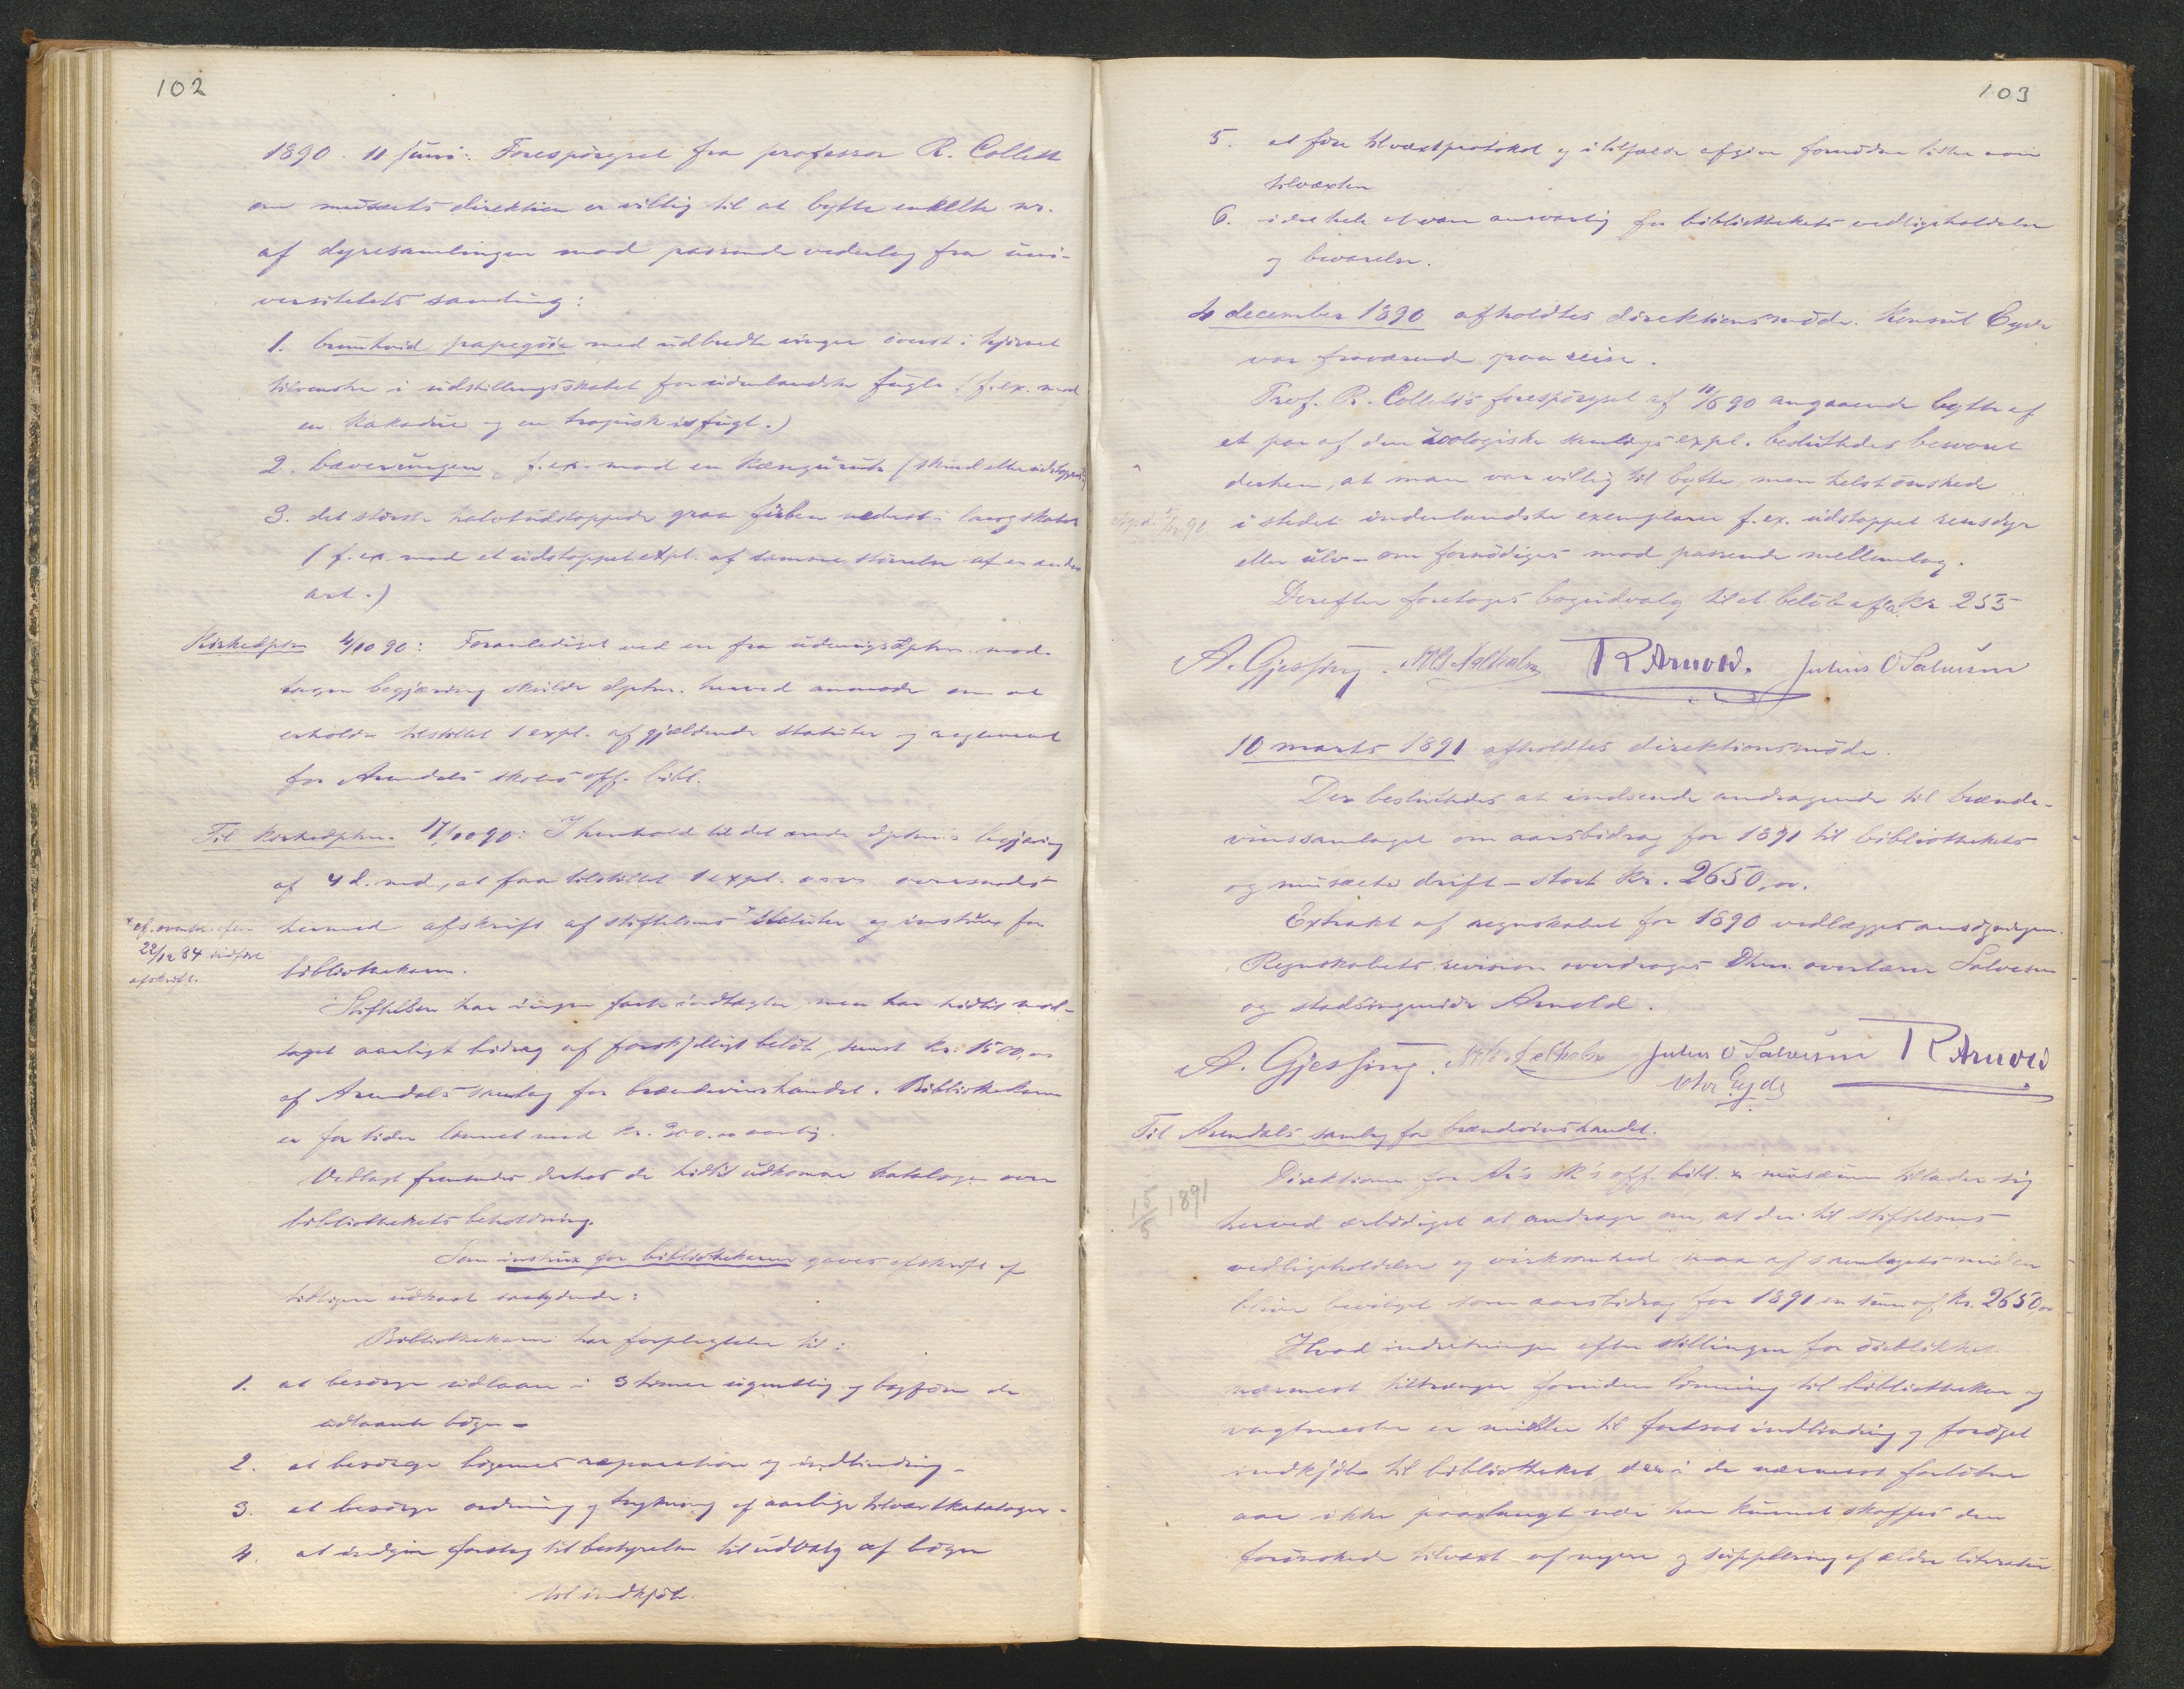 102
1890. 11 juni: Forespörgsel fra professor R. Collett
om musæets direktion er villig til at bytte enkelte nr.
af dyresamlingen mod passende vederlag fra uni-
versitetets samling:
1. brunhvid papegöie med udbredte vinger överst i hjörnet
tilvenstre i udstillingsskabet for udenlandske fugle. (f. ex. mod
en Kakadue og en tropisk isfugl.)
2. bæverungen, f. ex. mod en Kænguru (skind eller udstoppet)
3. det störste halvtudstoppede graa nederst i
(f. ex. mod et udstoppet expl. af samme störrelse af en anden
art.)
Kirkedptm 4/10 90: Foranlediget ved en fra mod-
tagen begjæring skulde dptm. herved anmode om at
erholde tilstillet 1 expl. af gjældende statuter og reglement
for Arendals skoles off. bibl.
Til kirkedptm. 17/10 90: I henhold til det ærede dptm's begjæring
af 4 d. md., at faa tilstillet 1 expl. osv. oversendes
hermed afskrift af stiftelsens * statuter og instrux for
bibliothekaren.
* cf.
22/12 84 indført
afskrift.
Stiftelsen har ingen faste indtægter men har hidtil mod-
taget aarligt bidrag af forskjelligt belöb, senest kr. 1500,00
af Arendals samlag for brændevinshandel. Bibliothekaren
er for tiden lönnet med kr. aarlig.
Vedlagt fremsendes derhos de hidtil udkomne kataloger over
bibliothekets beholdning.
Som instrux for bibliothekaren gaves afskrift af
tidligere udkast saalydende:
Bibliothekaren har forpligtelse til:
1. at besörge udlaan i 3 timer ugentlig og bogföre de
udlaante böger –
2. at besörge bögernes reparation og indbinding –
3. at besörge ordning og trykning af aarlige tilvæxtkataloger –
4. at indgive forslag til bestyrelsen til udvalg af böger
til indkjöb.
103
5. at före tilvæxtprotokol og i tilfælde afgive fornödne lister over
tilvæxten
6. i det hele at være ansvarlig for bibliothekets vedligeholdelse
og bevarelse.
4 december 1890 afholdtes direktionsmöde. Konsul Eyde
var fraværende paa reise.
Prof. R. Collett's forespörgsel af 11/6 90 angaaende bytte af
et par af den zoologiske samlings expl. besluttedes besvaret
derhen, at man var villig til bytte, men helst önskede
i stedet indenlandske exemplarer f. ex. udstoppet rensdyr
eller ulv – om fornödiges mod passende mellemlag.
Derefter foretoges bogudvalg til et belöb af ca Kr 255
A. Gjessing. R Arnold. Julius O Salvesen
10 marts 1891 afholdtes direktionsmöde.
Der besluttedes at indsende andragende til brænde-
vinssamlaget om aarsbidrag for 1891 til bibliothekets
og musæets drift – stort Kr. 2650,00.
Extrakt af regnskabet for 1890 vedlægges ansögningen.
Regnskabets revision overdroges Dhrr. overlærer Salvesen
og stadsingeniör Arnold.
A. Gjessing. Julius O Salvesen R Arnold
Eyde
Til Arendals samlag for brændevinshandel.
15/5 1891
Direktionen for Ar's sk's off. bibl. & musæum tillader sig
herved ærbödigst at andrage om, at der til stiftelsens
vedligeholdelse og virksomhed maa af samlagets midler
blive bevilget som aarsbidrag for 1891 en sum af Kr. 2650,00
Hvad indretningen efter stillingen for öieblikket
nærmest tiltrænger foruden lönning til bibliothekar og
vagtmester er midler til fortsat indbinding og forøget
indkjöb til bibliotheket, der i de nærmest forløbne
aar ikke paalangt nær har kunnet skaffes den
forönskede tilvæxt af nyere og supplering af ældre literatur